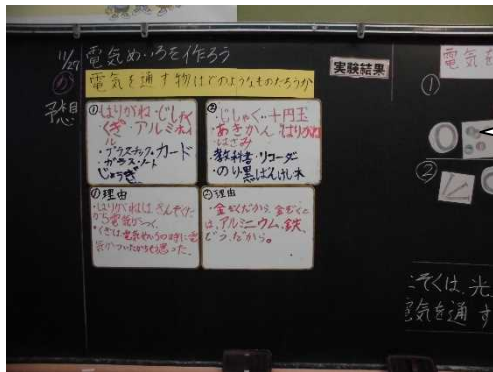 11/27
電気めいろを作ろう
か
電気を通す物はどのようなものだろうか
予想
実験結果
①
はりがね・じしゃく
くぎ・アルミホイル
・プラスチック・カード
・ガラス・ノート
じょうぎ
②
・じしゃく・十円玉
あきかん はりがね
はさみ
・教科書・リコーダー
・のり・黒ばんけし・木
①理由
・はりがねは、きんぞくだ
から電気がつく。
②理由
・金ぞくだから。金ぞくと
は、アルミニウム、鉄、
どう、だから。
電気を
①
②
そくは、光
電気を通す